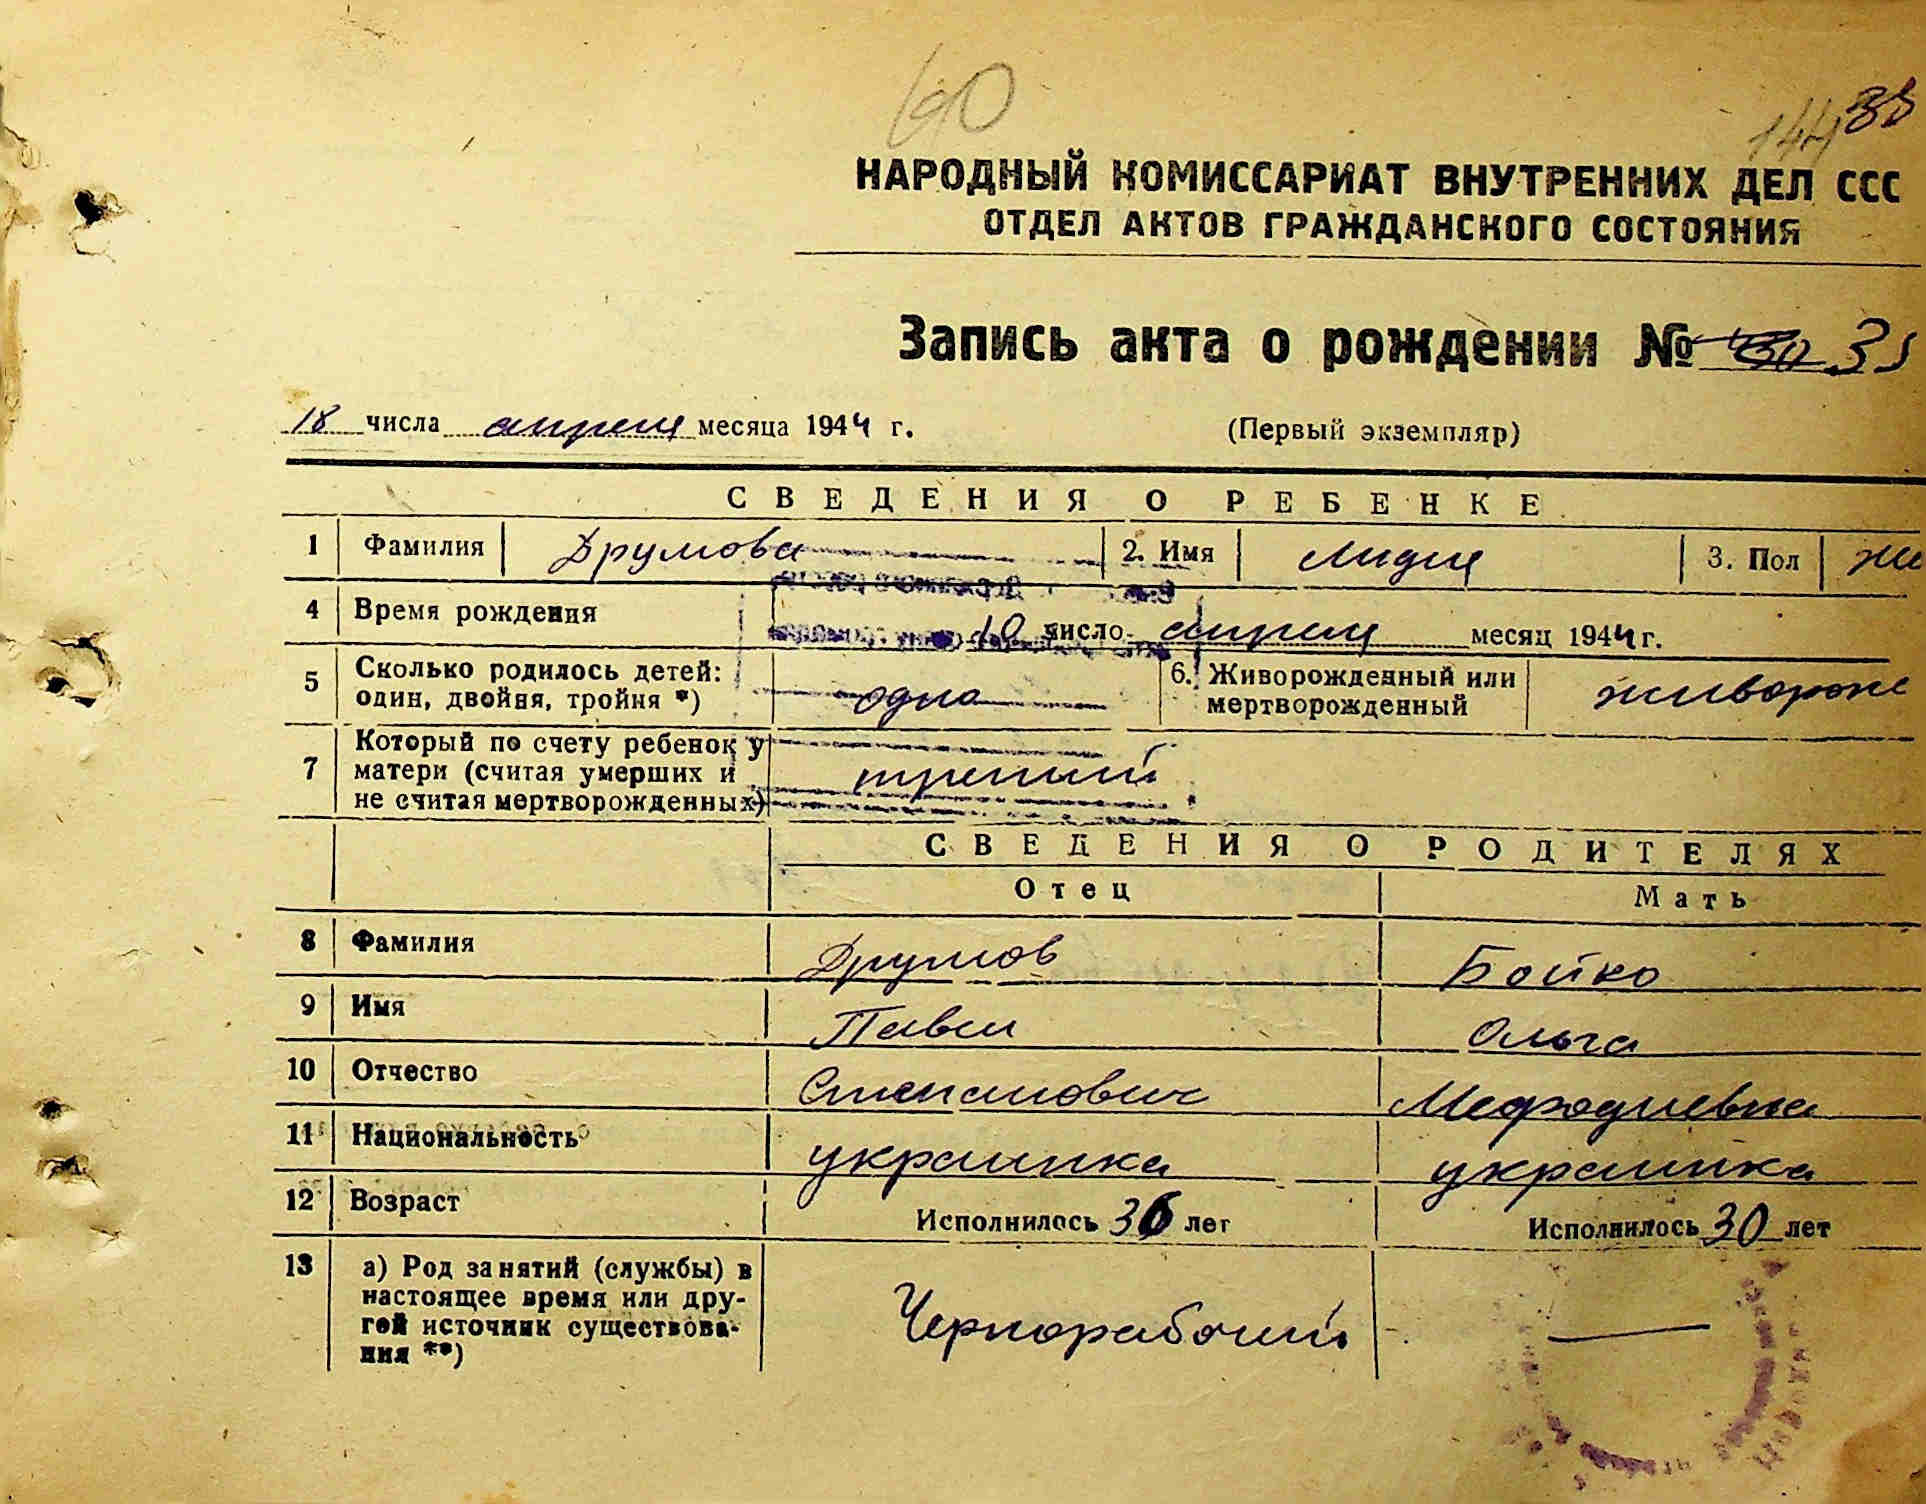 НАРОДНЫЙ КОМИССАРИАТ ВНУТРЕННИХ ДЕЛ ССС
ОТДЕЛ АКТОВ ГРАЖДАНСКОГО СОСТОЯНИЯ
Запись акта о рождении №
18 числа апреля месяца 1944 г. (Первый экземпляр)
СВЕДЕНИЯ О РЕБЕНКЕ
1 Фамилия Друмова 2. Имя Лидия 3. Пол
4 Время рождения 10 число апреля месяц 1944 г.
5 Сколько родилось детей: один, двойня, тройня *) одно 6. Живорожденный или мертворожденный живорож
7 Который по счету ребенок у матери (считая умерших и не считая мертворожденных) третий
СВЕДЕНИЯ О РОДИТЕЛЯХ
Отец Мать
8 Фамилия Друмов Бойко
9 Имя Павел Ольга
10 Отчество Степанович Мефодиевна
11 Национальность украинка украинка
12 Возраст Исполнилось 36 лет Исполнилось 30 лет
13 а) Род занятий (службы) в
настоящее время или дру-
гой источник существова-
ния **) Чернорабочий —